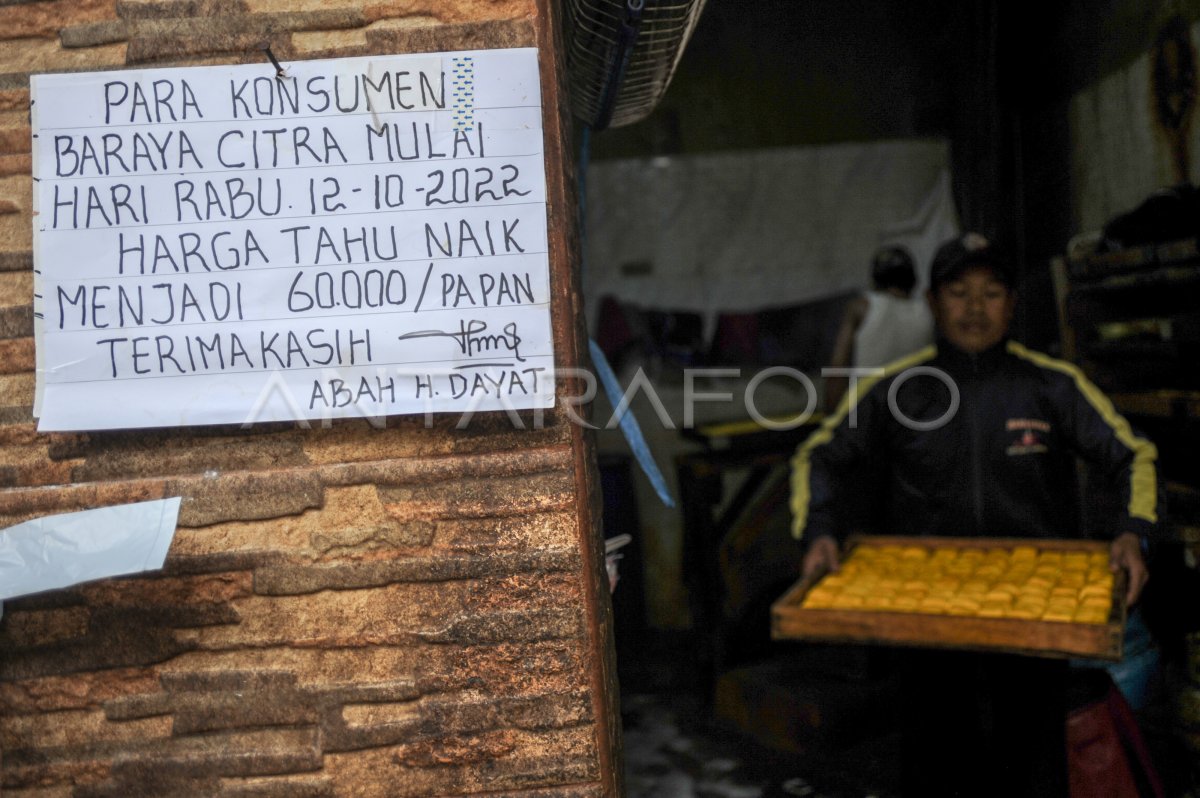 PARA KONSUMEN
BARAYA CITRA MULAI
HARI RABU. 12-10-2022
HARGA TAHU NAIK
MENJADI 60.000/PAPAN
TERIMAKASIH
ABAH H. DAYAT
ANTARAFOTO